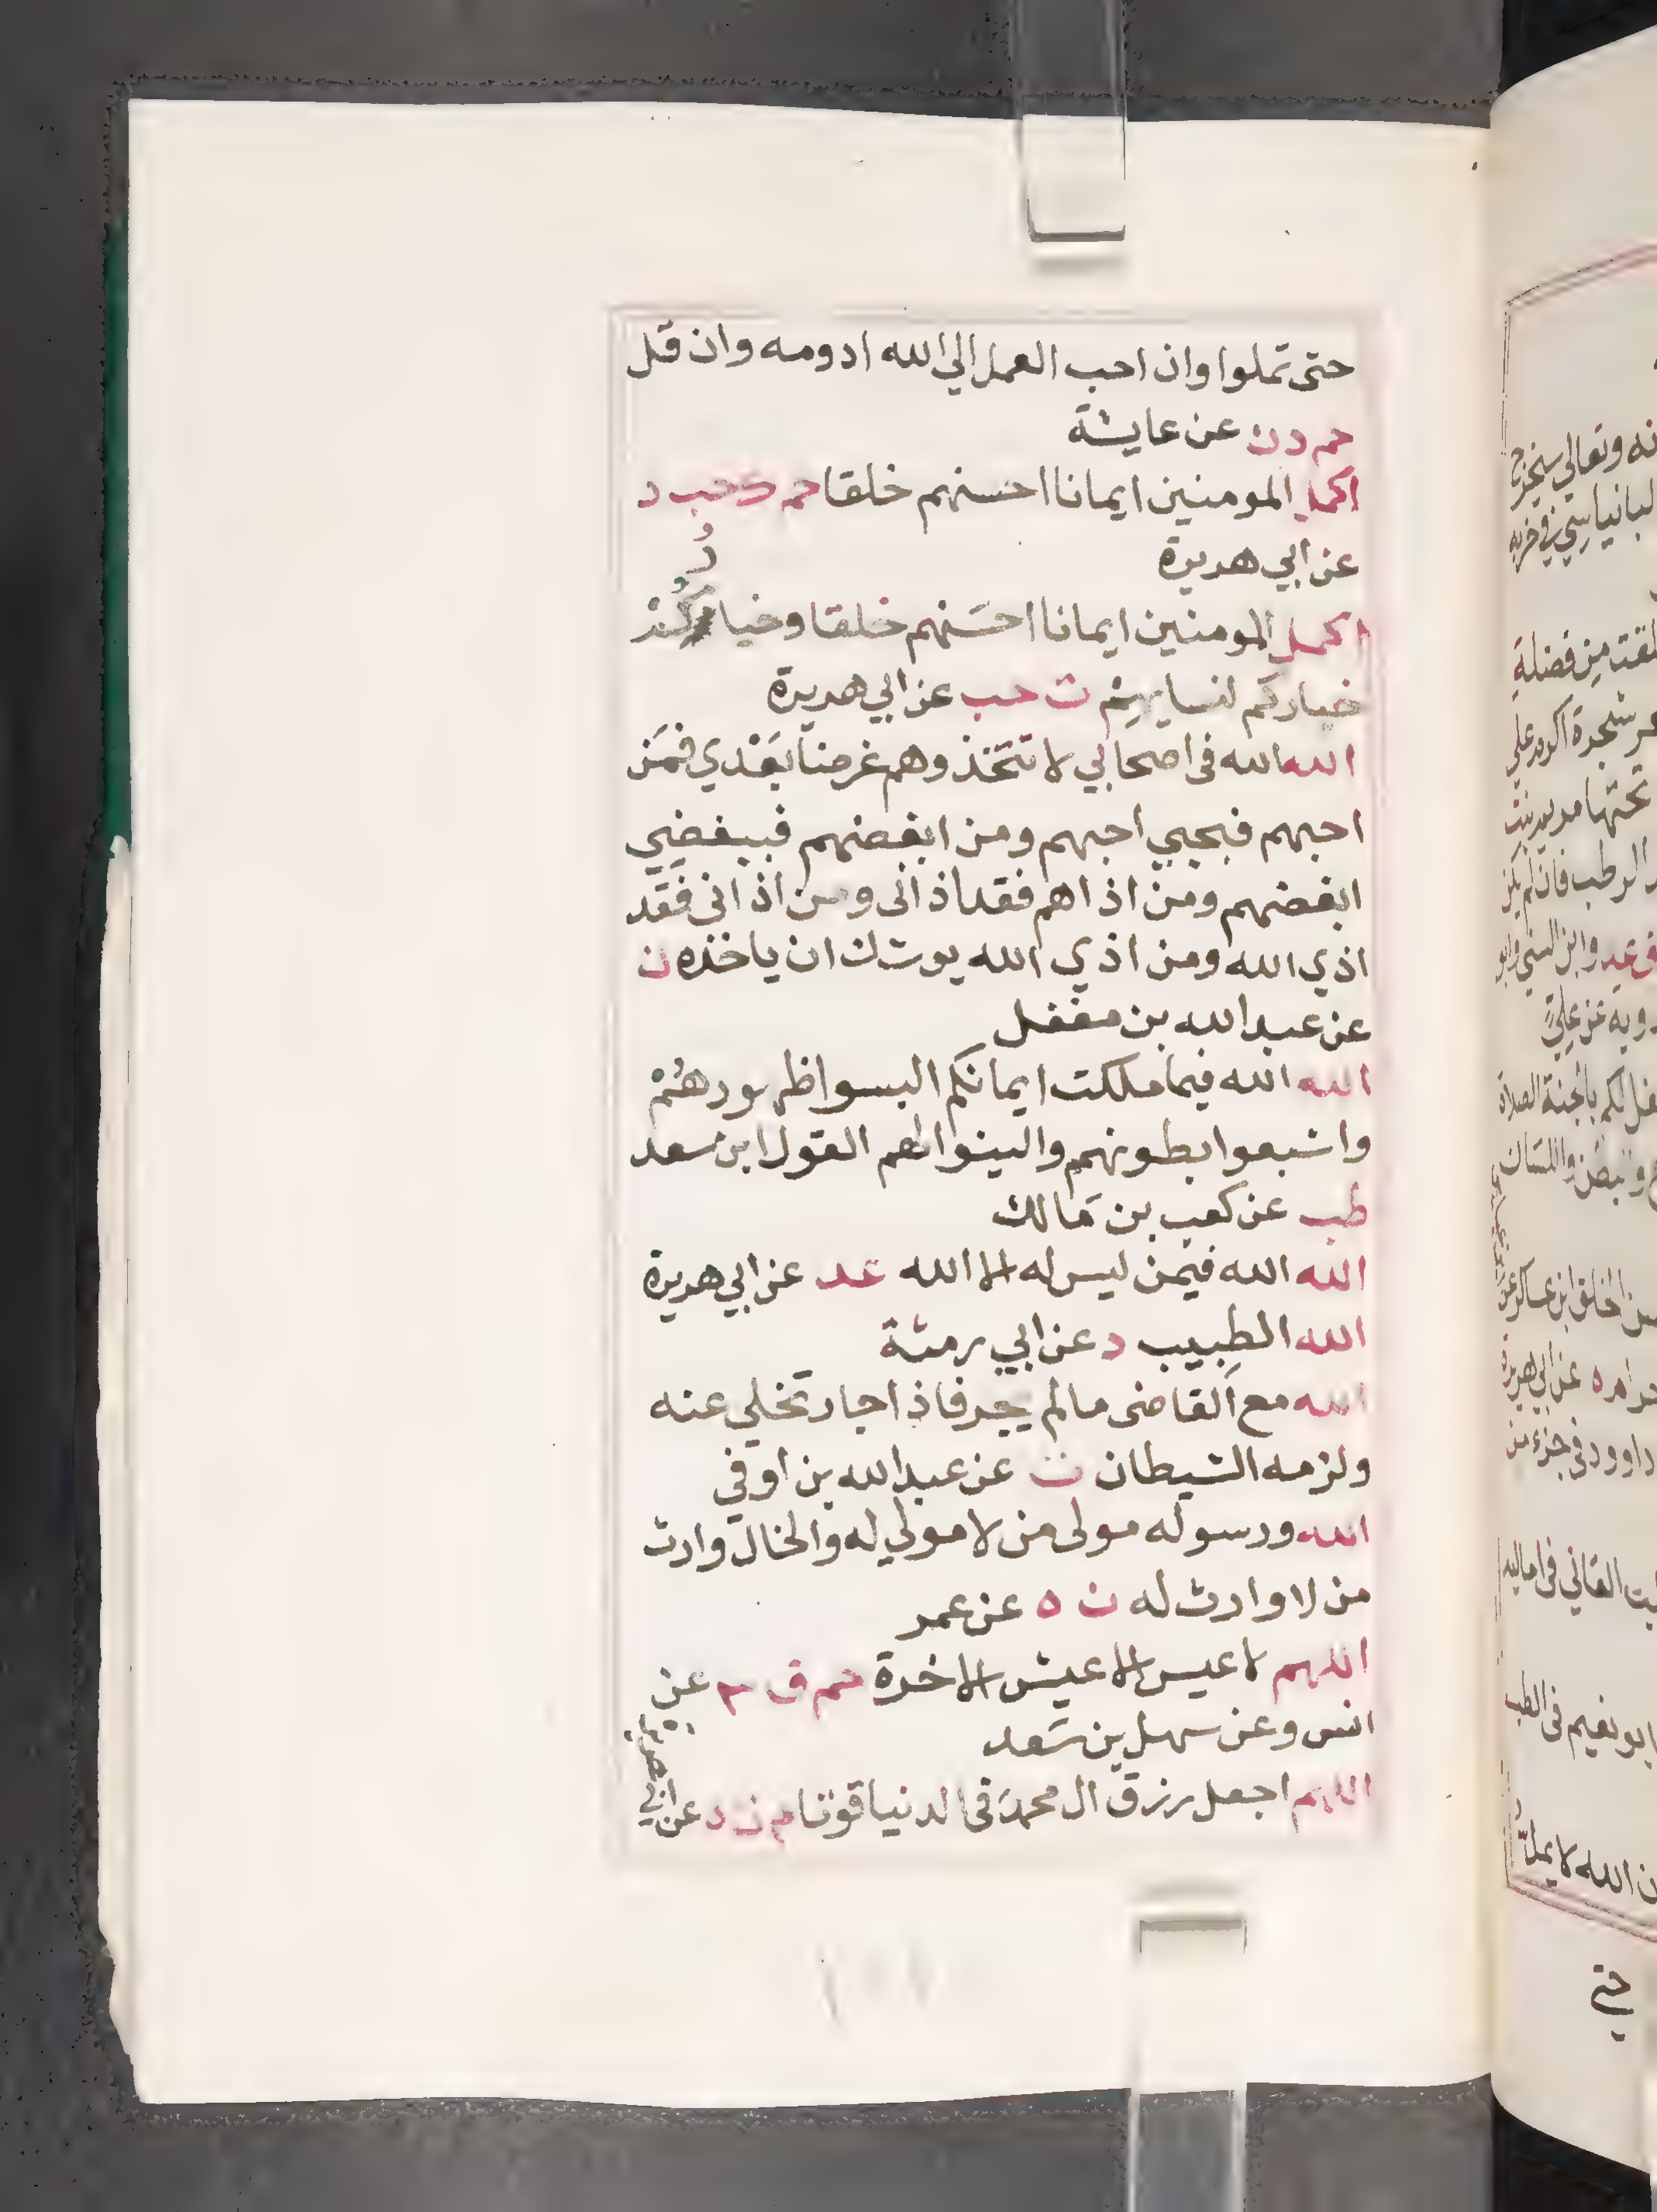 حتى تملوا وان احب العمل الي الله ادومه وان قل
حم د ن عن عايشة
اكمل المومنين ايمانا احسنهم خلقا حم د حب د
عن ابي هريرة
اكمل المومنين ايمانا احسَنهم خلقا وخياركم
خياركم لنسايهِمْ ت حب عن ابي هريرة
الله الله في اصحابي لا تتخذوهم غرضا بَعْدي فمَن
احبهم فبحبي احبهم ومن ابغضهم فببغضِي
ابغضهم ومن اذاهم فقد اذاني ومن اذاني فقَد
اذي الله ومن اذي الله يوشك ان ياخذه ت
عن عبد الله بن مغفل
الله الله فيما ملكت ايمانكم البسوا ظهورهُمْ
واشبعوا بطونهم والينوا لهم القول ابن سعد
طب عن كعب بن مَالك
الله الله فيمن ليس له الا الله عد عن ابي هريرة
الله الطبِيب د عن ابي رمثة
الله مع القاضى مالم يجر فاذا جار تخلي عنه
ولزمه الشيطان ت عن عبد الله بن اوفي
الله ورسوله مولى من لا مولي له والخال وارث
من لا وارث له ت ه عن عمر
اللهم لا عيس الا عيش الاخرة حم ق ٣ عن
انس وعن سهل بن سَعد
اللهم اجعل رزق ال محمدَ في الدنيا قوتا م ت د عن ابي
هريرة
نه وتعالي سيخرج
لقت مِن فضلةِ
شجرة اكرم علي
الرطب فان لم يكن
دويه عن عليّ
داوود في جزء من
ابو نعيم في الطب
ن الله لا يملّ
حتى